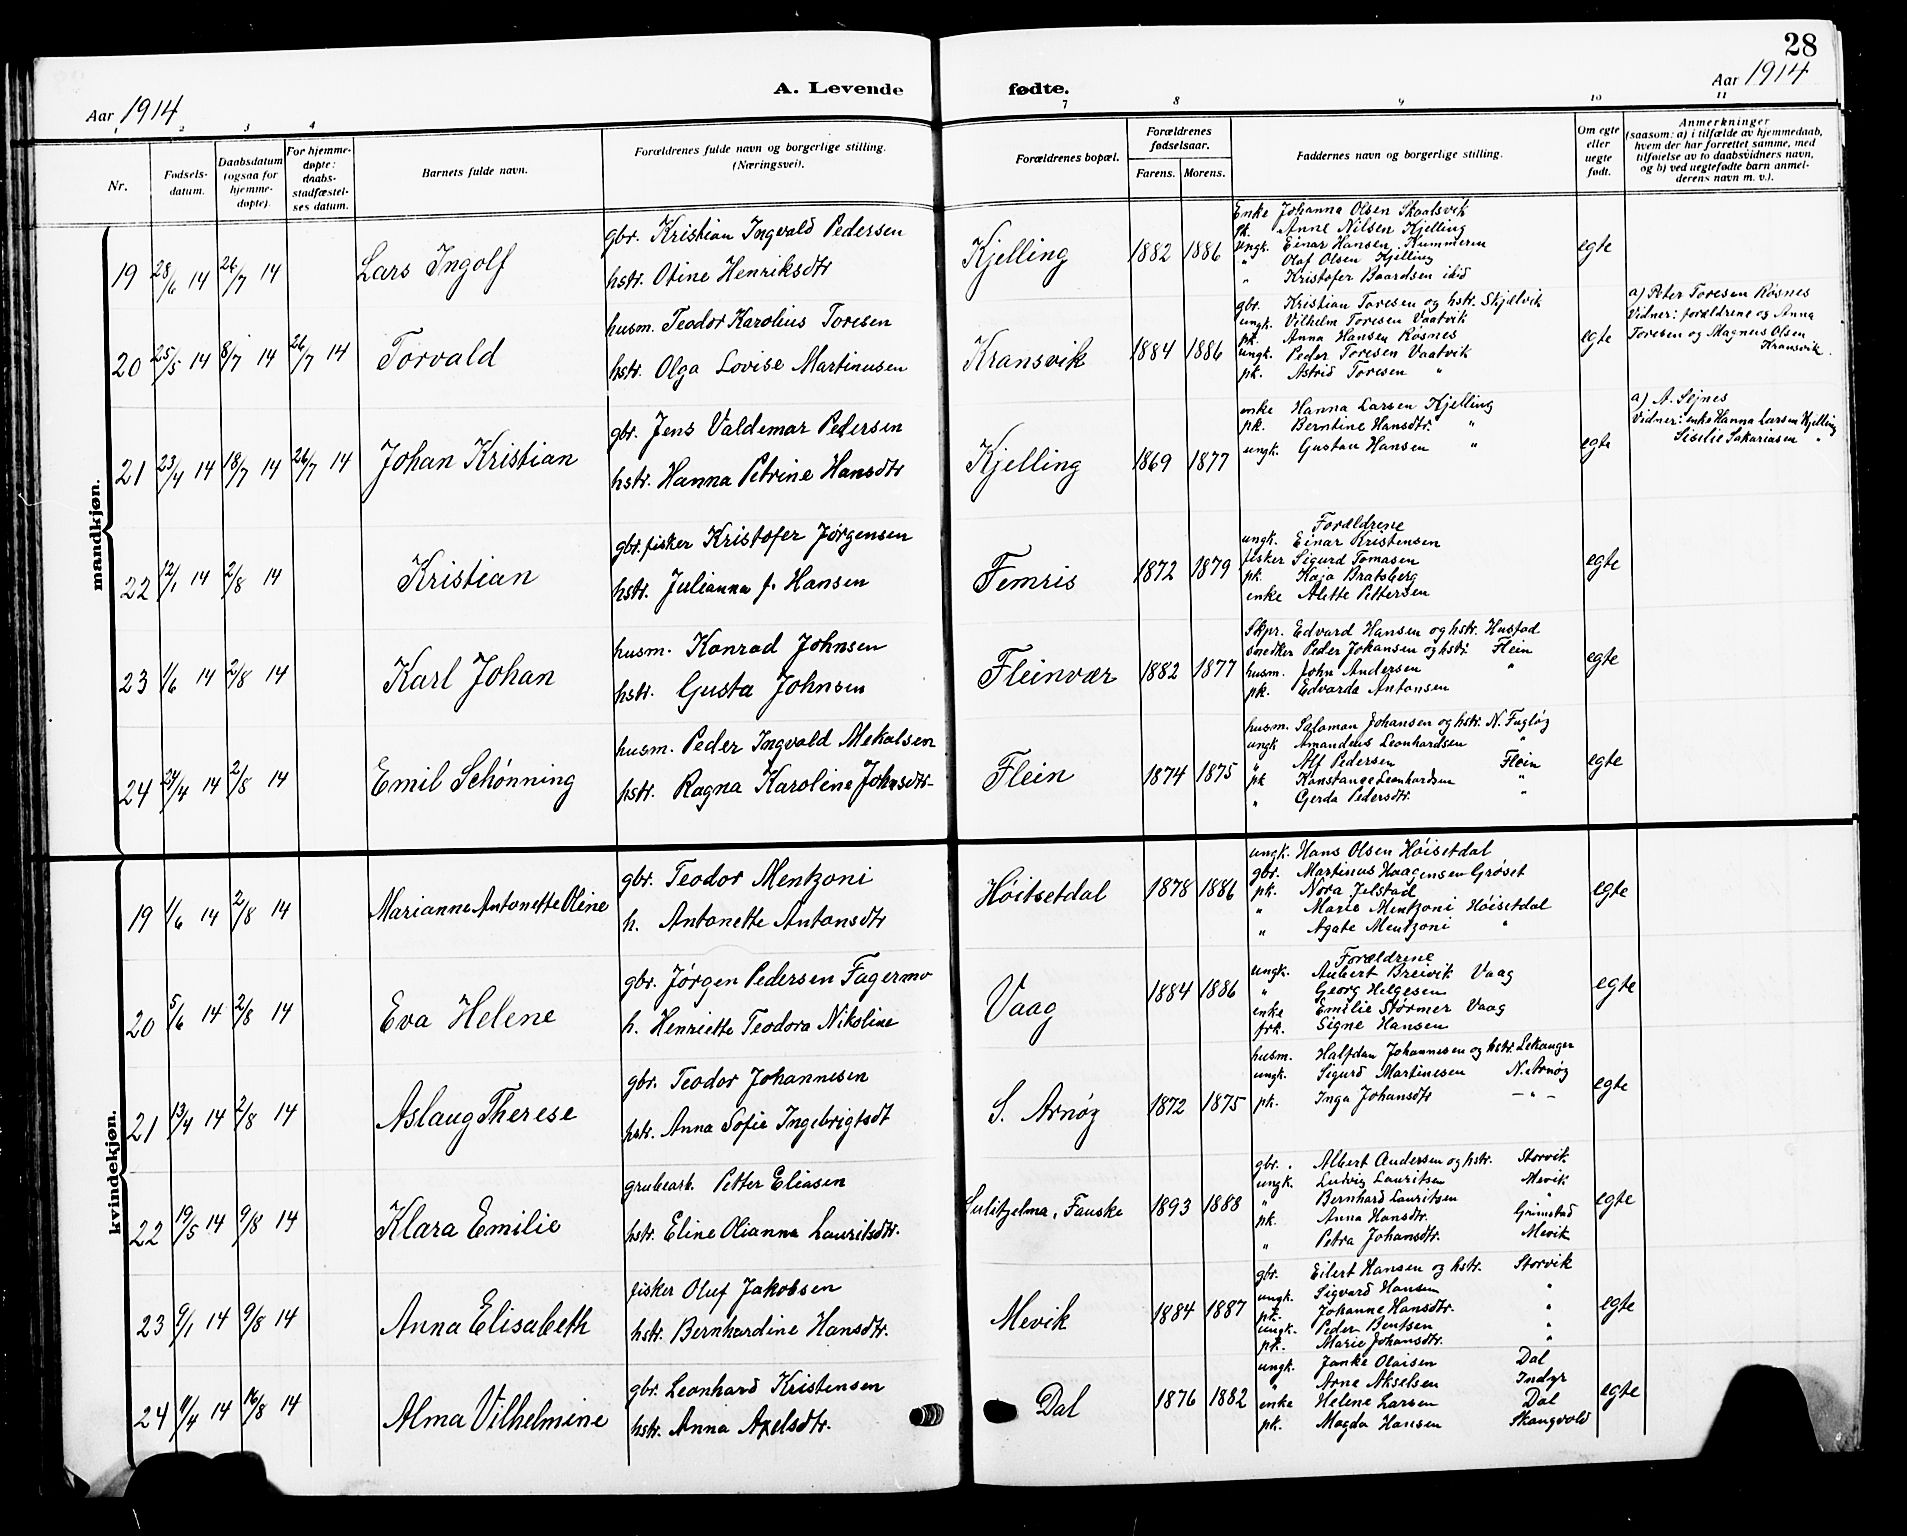 28
Aar 1914
A. Levende
fødte.
Aar 1914
1 2 3 4 7 8 9 10 11
Nr.
Fødsels-
datum.
Daabsdatum
(ogsaa for
hjemme-
døpte).
For hjemme-
døpte:
daabs-
stadfæstel-
ses datum.
Barnets fulde navn.
Forældrenes fulde navn og borgerlige stilling.
(Næringsvei).
Forældrenes bopæl.
Forældrenes
fødselsaar.
Farens. Morens.
Faddernes navn og borgerlige stilling.
Om egte
eller
uegte
født.
Anmerkninger
(saasom: a) i tilfælde av hjemmedaab,
hvem der har forrettet samme, med
tilføielse av to daabsvidners navn,
og b) ved uegtefødte barn anmel-
derens navn m. v.).
mandkjøn.
19 28/6 14 26/7 14 Lars Ingolf
gbr. Kristian Ingvald Pedersen
hstr. Otine Henriksdtr
Kjelling 1882 1886
Enke Johanna Olsen Skaalsvik
pk. Anne Nilsen Kjelling
Ungk. Einar Hansen Kummeren
" Olaf Olsen Kjelling
" Kristofer Baardsen ibid
egte
20 25/5 14 8/7 14 26/7 14 Torvald
husm. Teodor Karolius Toresen
hstr. Olga Lovise Martinusen
Kransvik 1884 1886
gbr. Kristian Toresen og hstr. Skjelvik
ungk. Vilhelm Toresen Vaatvik
pk. Anna Hansen Røsnes
ungk. Peder Toresen Vaatvik
pk. Astrid Toresen "
egte
a) Peter Toresen Røsnes
Vidner: forældrene og Anna
Toresen og Magnus Olsen
Kransvik.
21 23/4 14 18/7 14 26/7 14 Johan Kristian
gbr. Jens Valdemar Pedersen
hstr. Hanna Petrine Hansdtr
Kjelling 1869 1877
enke Hanna Larsen Kjelling
pk. Berntine Hansdtr. "
ungk. Gustav Hansen "
egte
a) A. Sejnes
Vidner: enke Hanna Larsen Kjelling
Siselie Sakariasen "
22 12/1 14 2/8 14 Kristian
gbr. fisker Kristofer Jørgensen
hstr. Julianna f. Hansen
Femris 1872 1879
Forældrene
ungk. Einar Kristensen
fisker Sigurd Tomasen
pk. Kaja Bratsberg
enke Alette Pettersen
egte
23 1/6 14 2/8 14 Karl Johan
husm. Konrad Johnsen
hstr. Gusta Johnsen
Fleinvær 1882 1877
Skpr. Edvard Hansen og hstr. Hustad
snedker Peder Johansen og hstr. Flein
husm. John Andersen "
pk. Edvarda Antonsen
egte
24 24/4 14 2/8 14 Emil Schønning
husm. Peder Ingvald Mekalsen
hstr. Ragna Karoline Johnsdtr.
Flein 1874 1875
husm. Salamon Johansen og hstr. N. Fugløy
ungk Amandus Leonhardsen "
" Alf Pedersen Flein
pk Konstanse Leonhardsen "
" Gerda Pedersdtr. "
egte
kvindekjøn.
19 1/6 14 2/8 14 Marianne Antonette Oline
gbr. Teodor Mentzoni
h. Antonette Antonsdtr
Høitsetdal 1878 1886
ungk. Hans Olsen Høisetdal
gbr. Martinus Haagensen Grøset
pk. Nora Jelstad
" Marie Mentzoni Høisetdal
" Agate Mentzoni "
egte
20 5/6 14 2/8 14 Eva Helene
gbr. Jørgen Pedersen Fagermo
h. Henriette Teodora Nikoline
Vaag 1884 1886
Forældrene
ungk. Aubert Breivik Vaag
" Georg Helgesen
enke Emilie Størmer Vaag
frk. Signe Hansen
egte
21 13/4 14 2/8 14 Aslaug Therese
gbr. Teodor Johannesen
hstr. Anna Sofie Ingebrigtsdt
S. Arnøy 1872 1875
husm. Halfdan Johannesen og hstr. Lekanger
ungk. Sigurd Martinesen N. Arnøy
pk. Inga Johansdtr — " —
egte
22 19/5 14 9/8 14 Klara Emilie
grubearb. Petter Eliasen
hstr. Eline Olianna Lauritsdtr.
Sulitjelma, Fauske 1893 1888
gbr. Albert Andersen og hstr. Storvik
ungk. Ludvig Lauritsen Mevik
" Bernhard Lauritsen "
pk. Anna Hansdtr. Grimstad
" Petra Johansdtr. Mevik
egte
23 9/1 14 9/8 14 Anna Elisabeth
fisker Oluf Jakobsen
hstr. Bernhardine Hansdtr.
Mevik 1884 1887
gbr. Eilert Hansen og hstr. Storvik
ungk. Sigvard Hansen "
pk. Johanne Hansdtr. "
ungk. Peder Bentsen "
pk. Marie Johansdtr. "
egte
24 11/4 14 16/8 14 Alma Vilhelmine
gbr. Leonhard Kristensen
hstr. Anna Axelsdtr.
Dal 1876 1882
ungk. Janke Olaisen Dal
" Arne Akselsen Indyr
enke Helene Larsen Dal
pk. Magda Hansen Skangvold
egte